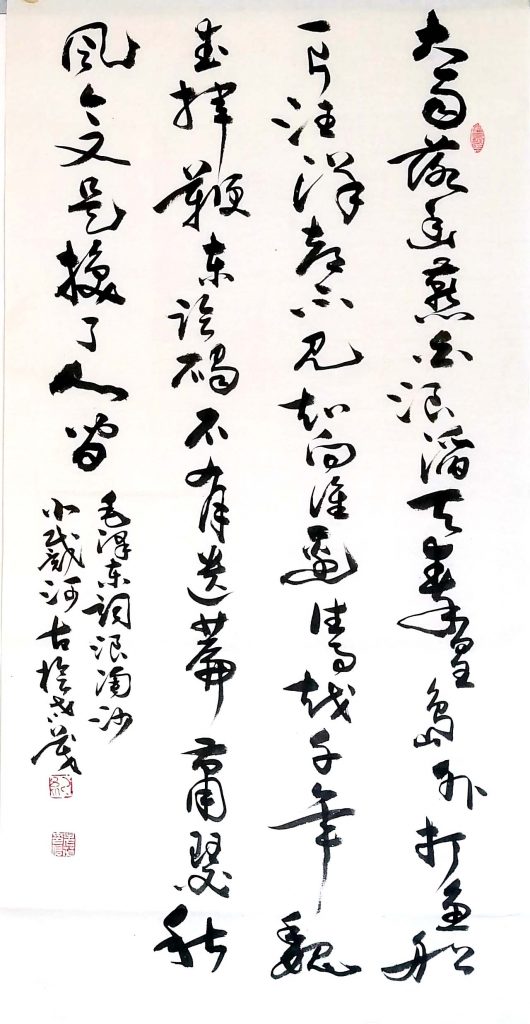 大雨落幽燕白浪滔天秦皇岛外打鱼船
一片汪洋都不见知向谁边往事越千年魏
武挥鞭东临碣石有遗篇萧瑟秋
风今又是换了人间
毛泽东词浪淘沙